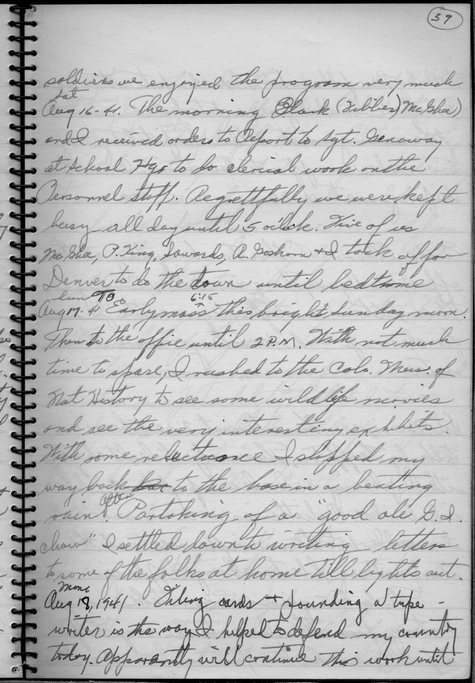 37
soldiers we enjoyed the program very much
Sat
Aug 16-41. The morning Slack (Zibilee) McGha)
and I received orders to report to Sgt. Genoway
at School Hqs to do clerical work on the
Personnel Staff. Regrettfully we were kept
busy all day until 5 o'clock. Five of us
McGha, P. King, Sowards, A. Goshorn & I took off for
Denver to do the town until bedtime
Sun TO 6:15
Aug 17. 41 Early mass this bright Sunday morn.
Then to the office until 2 P.M. With not much
time to spare, I rushed to the Colo. Mus. of
Nat History to see some wildlife movies
and see the very interesting exhibits.
With some reluctance I slopped my
way back to the base in a beating
rain. After Partaking of a "good ole G.I.
chow" I settled down to writing letters
to some of the folks at home till lights out.
Mon
Aug 18, 1941. Filing cards & pounding a type-
writer is the way I helped to defend my country
today. Apparently will continue this work until